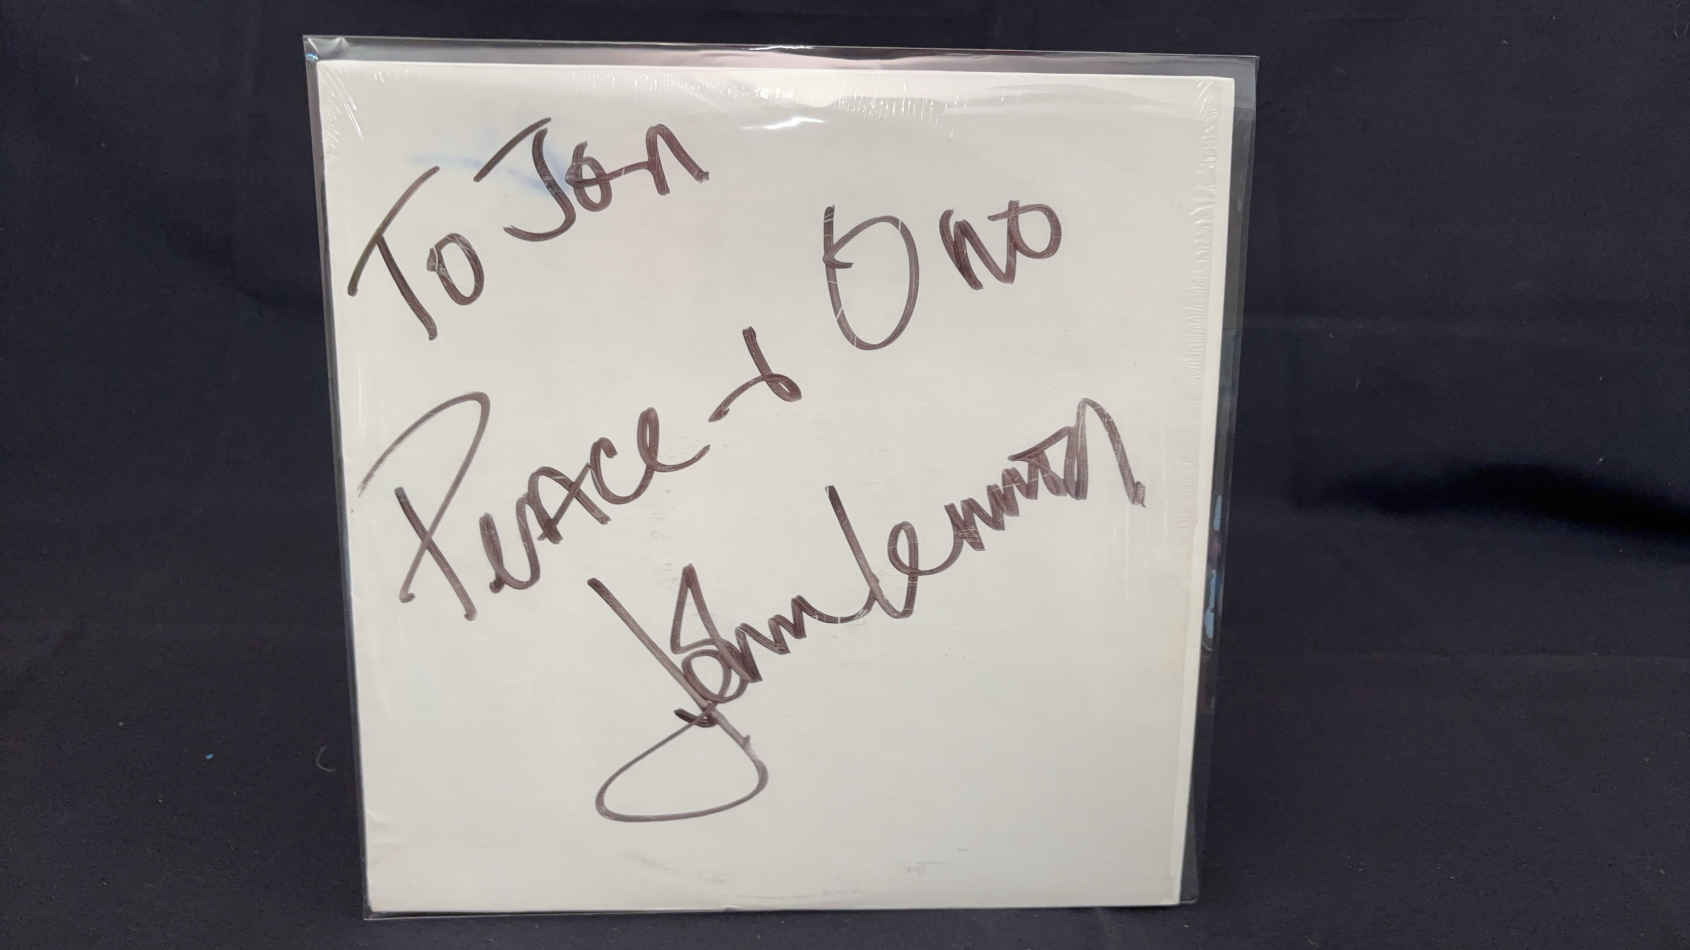 To Jon
Peace & Ono
John Lennon